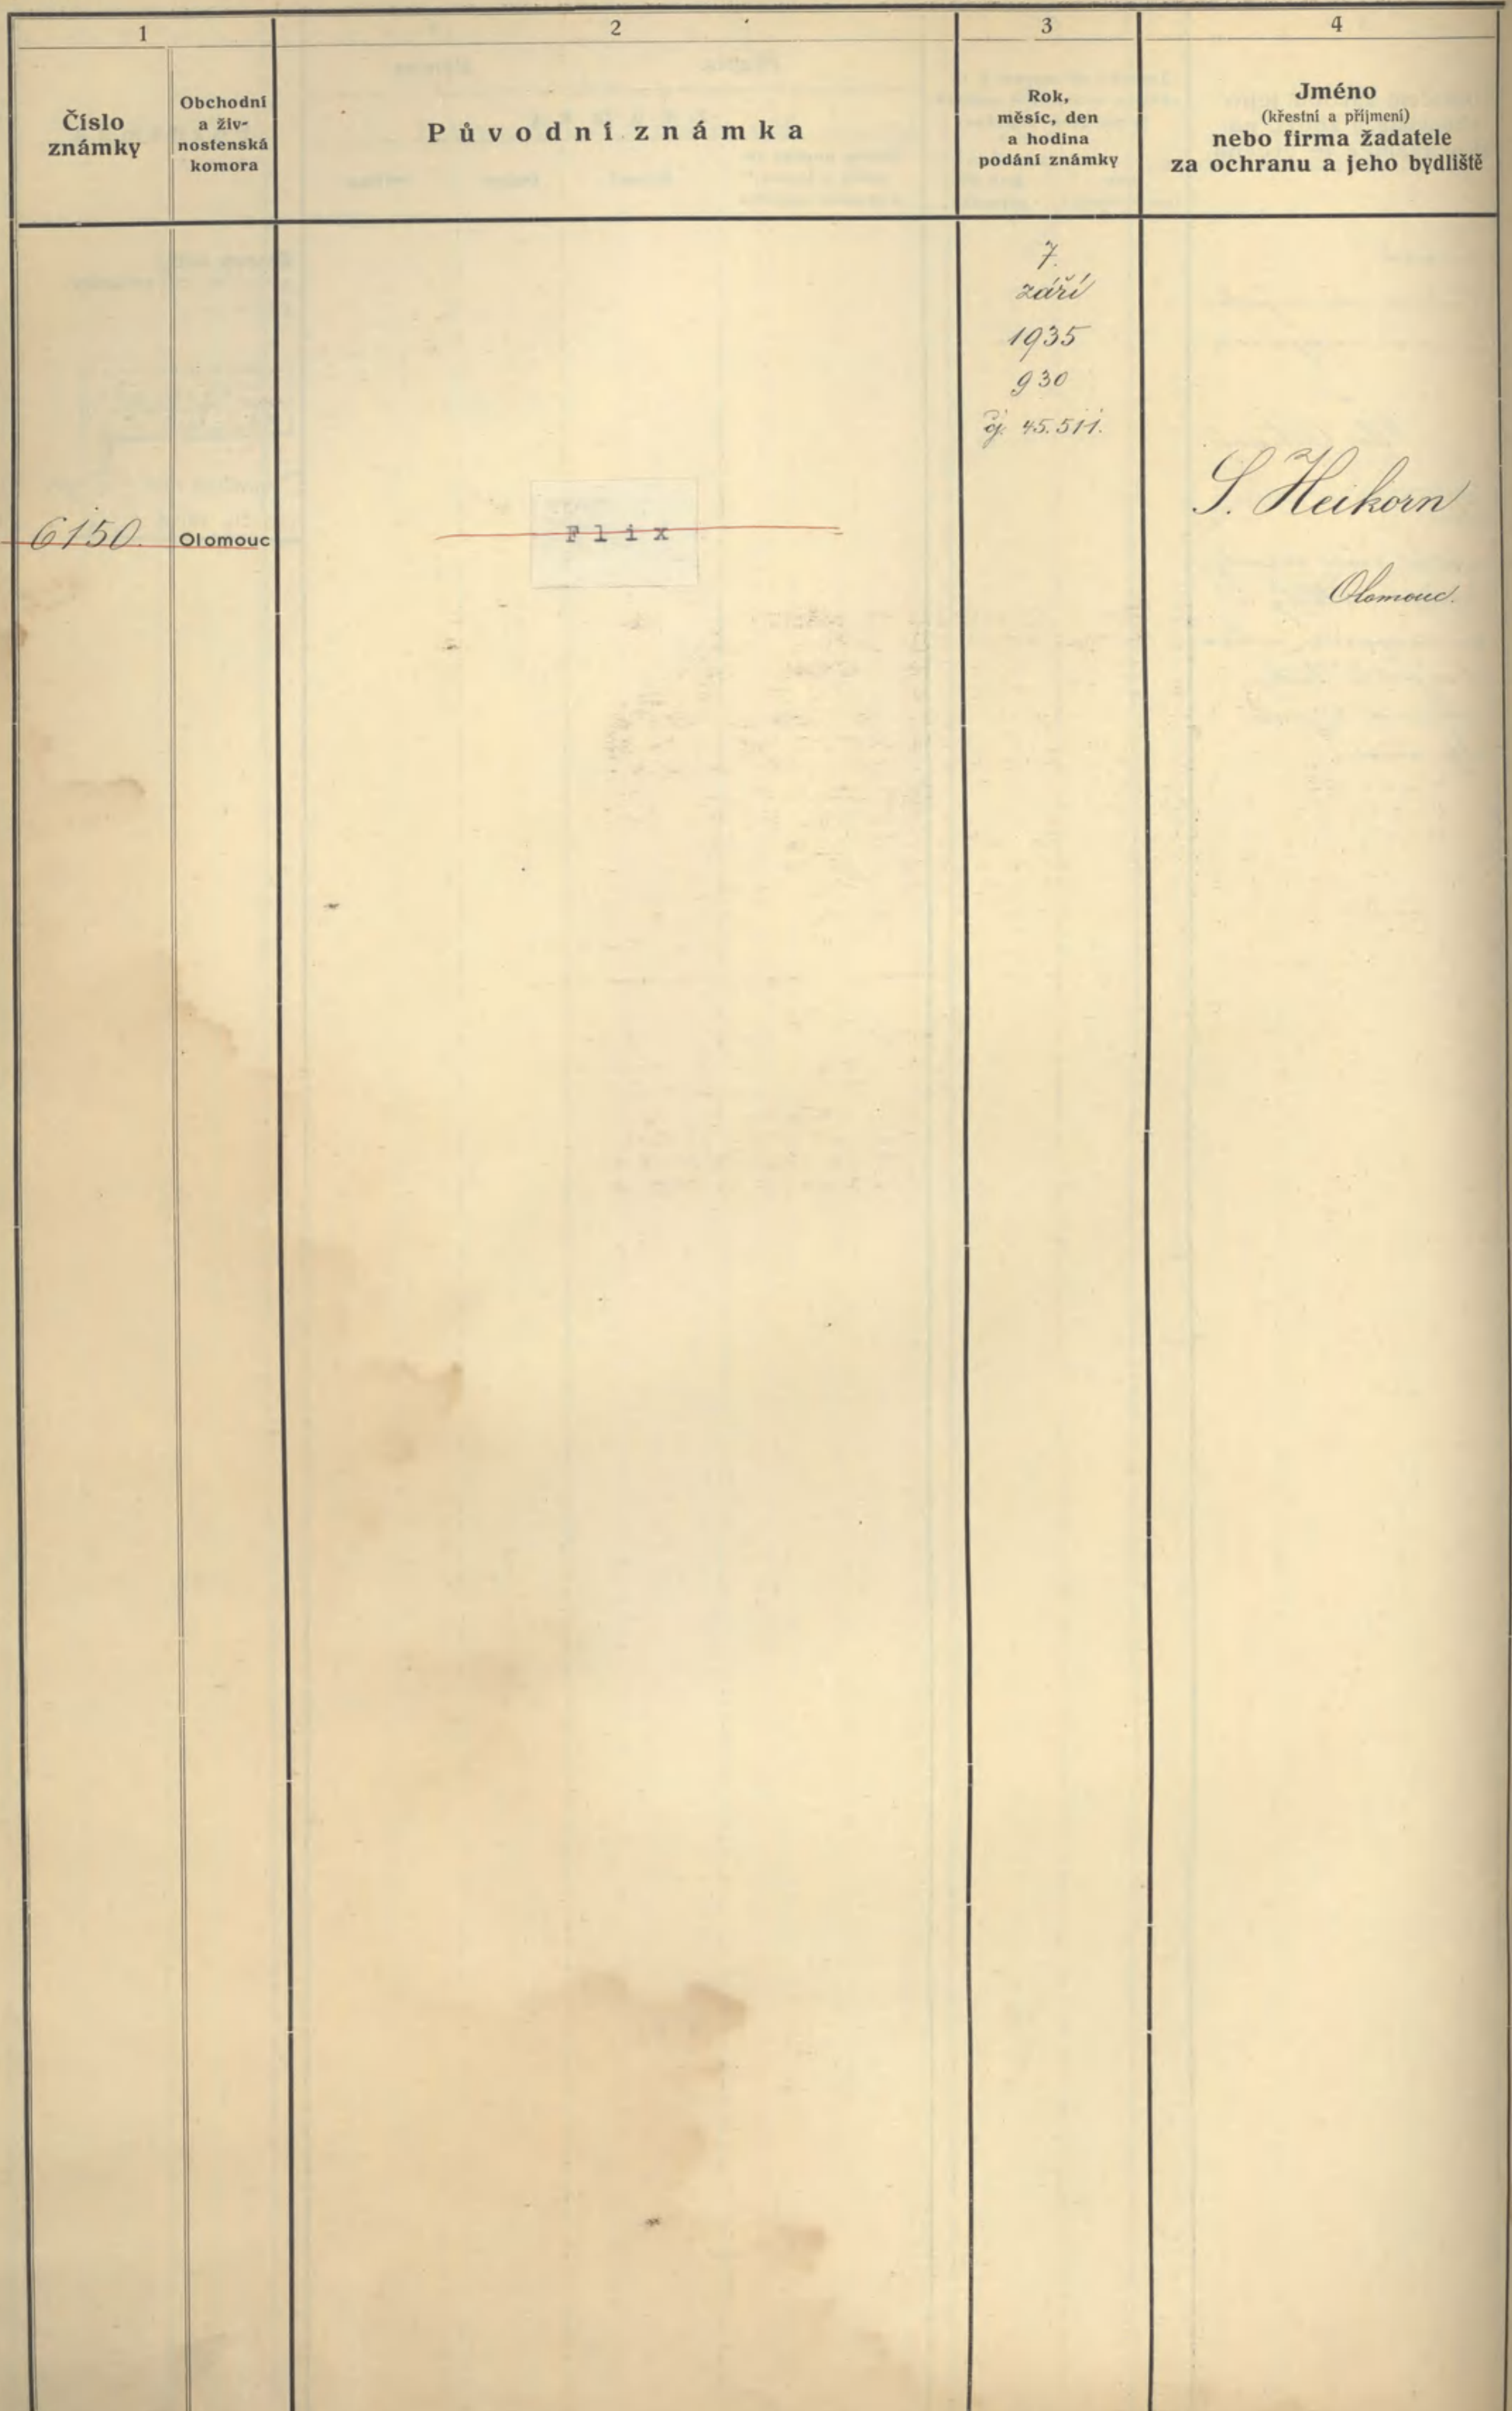 1
2
3
4
Číslo
známky
Obchodní
a živ-
nostenská
komora
Původní známka
Rok,
měsíc, den
a hodina
podání známky
Jméno
(křestní a příjmení)
nebo firma žadatele
za ochranu a jeho bydliště
7.
září
1935
9 30
čj. 45.511.
6150.
Olomouc
Flix
S. Heikorn
Olomouc.